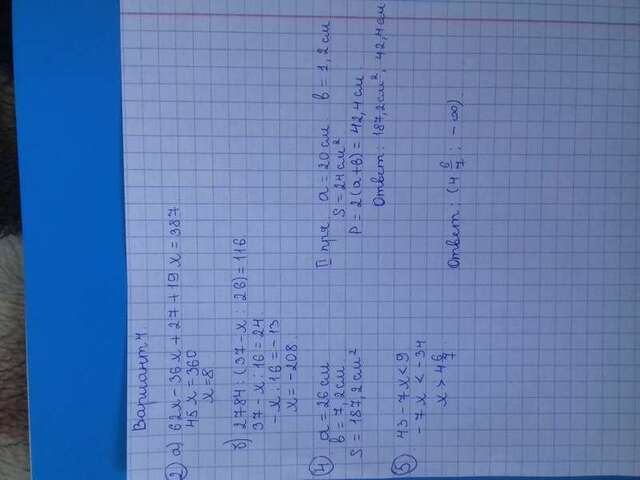 Вариант 4.
2) а) 62x - 36x + 27 + 19x = 387
45x = 360
x = 8
б) 2784 : (37 - x : 26) = 116
37 - x : 16 = 24
- x : 16 = - 13
x = - 208.
4) a = 26 см
b = 7,2 см
S = 187,2 см²
II пря. a = 20 см b = 1,2 см
S = 24 см²
P = 2(a+b) = 42,4 см
Ответ: 187,2 см², 42,4 см
5) 43 - 7x < 9
- 7x < - 34
x > 4 6/7
Ответ: (4 6/7 ; - ∞)